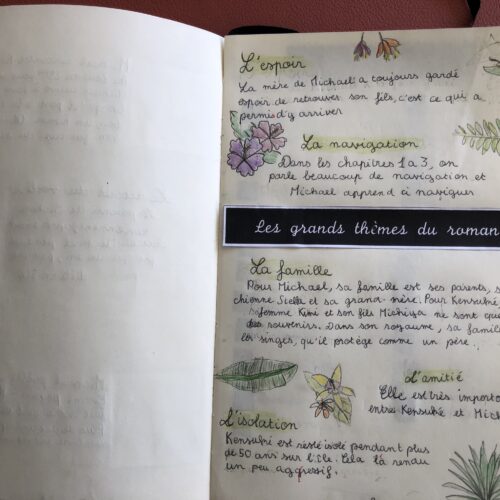 L'espoir
La mère de Michael a toujours gardé
espoir de retrouver son fils, c'est ce qui a
permis d'y arriver
La navigation
Dans les chapitres 1 à 3, on
parle beaucoup de navigation et
Michael apprend à naviguer
Les grands thèmes du roman
La famille
Pour Michael, sa famille est ses parents, s
chienne Stella et sa grand-mère. Pour Kensuké
sa femme Kimi et son fils Michiya ne sont que
des souvenirs. Dans son royaume, sa famille
les singes, qu'il protège comme un père.
L'amitié
Elle est très importa
entre Kensuké et Mich
L'isolation
Kensuké est resté isolé pendant plus
de 50 ans sur l'île. Cela l'a rendu
un peu aggressif.